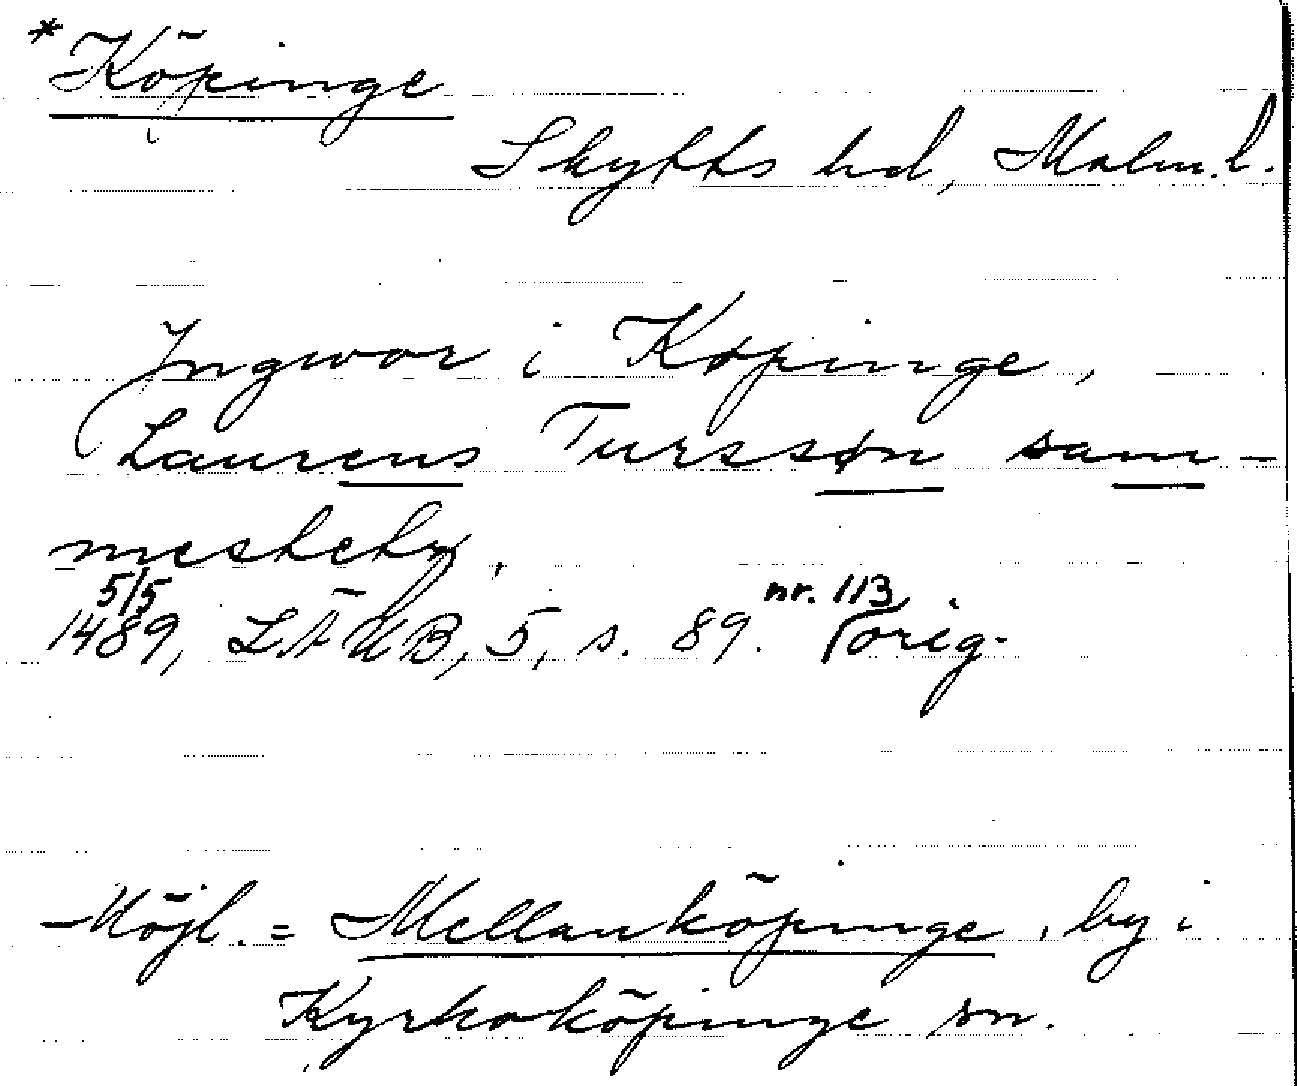 *Köpinge
Skytts hd, Malm.l.
Ingwor i Köpinge,
Laurens Turssøn sam-
mestets,
5/5
nr. 113
1489, LÄUB, 5, s. 89. orig.
Möjl. = Mellanköpinge, by i
Kyrkoköpinge sn.